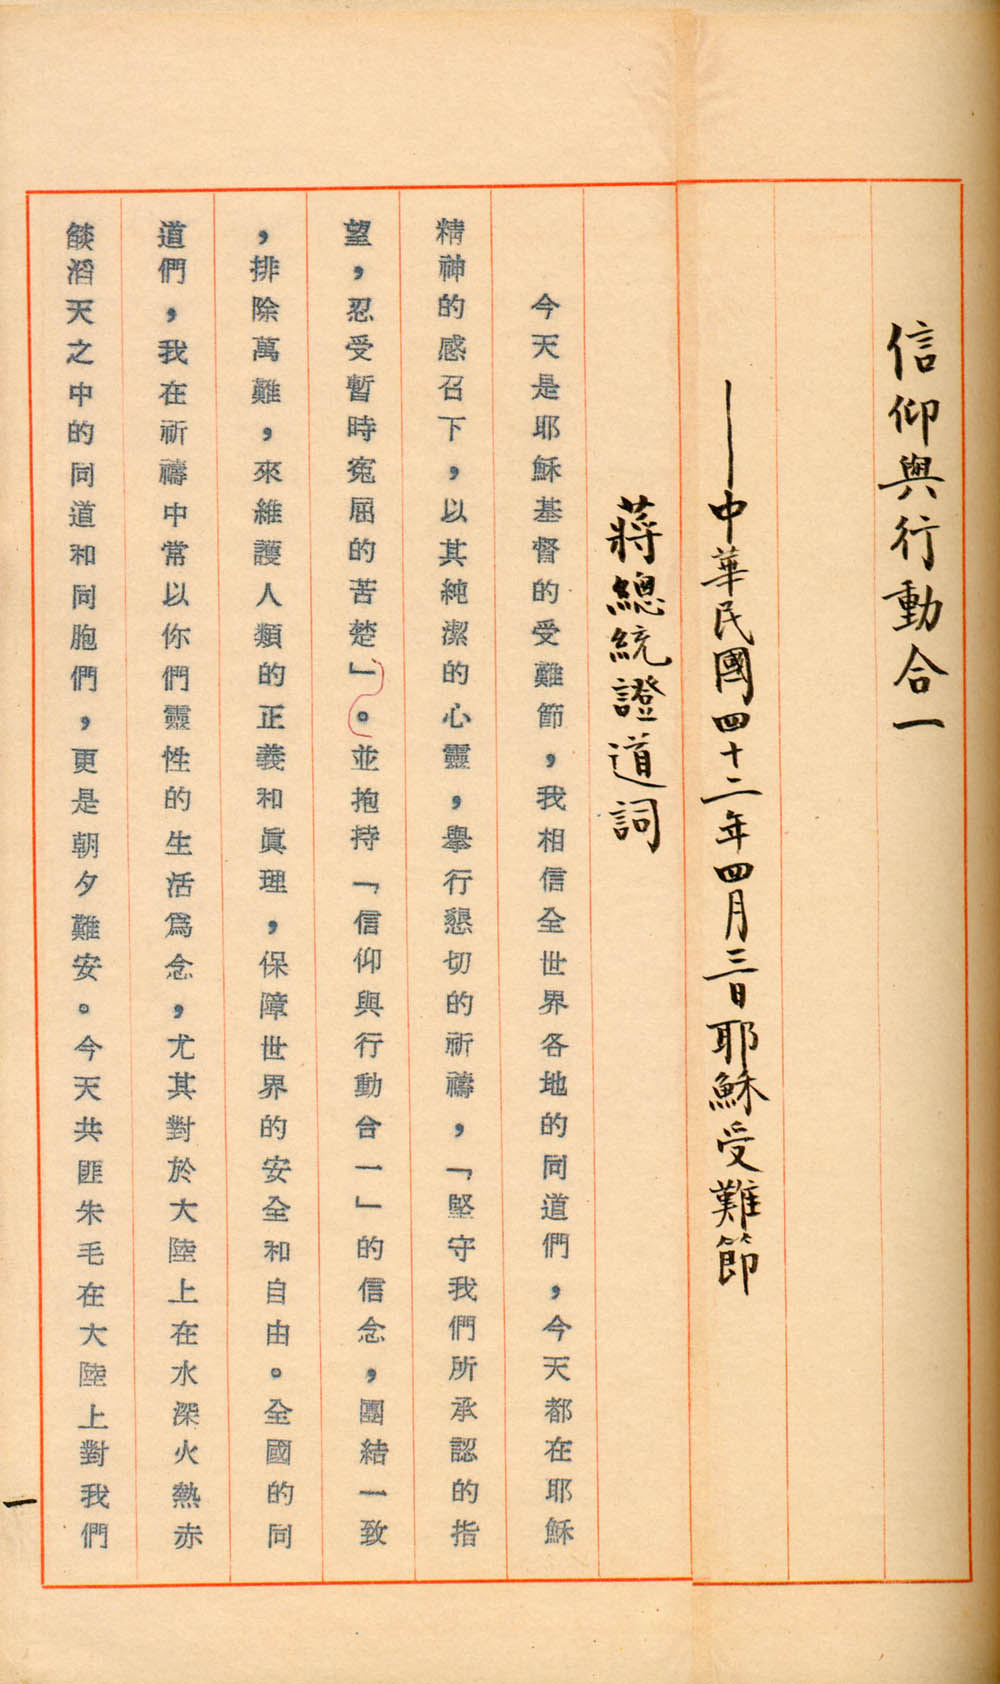 信仰與行動合一
——中華民國四十二年四月三日耶穌受難節
蔣總統證道詞
今天是耶穌基督的受難節，我相信全世界各地的同道們，今天都在耶穌
精神的感召下，以其純潔的心靈，舉行懇切的祈禱，「堅守我們所承認的指
望，忍受暫時寃屈的苦楚」。並抱持「信仰與行動合一」的信念，團結一致
，排除萬難，來維護人類的正義和眞理，保障世界的安全和自由。全國的同
道們，我在祈禱中常以你們靈性的生活爲念，尤其對於大陸上在水深火熱赤
燄滔天之中的同道和同胞們，更是朝夕難安。今天共匪朱毛在大陸上對我們
一